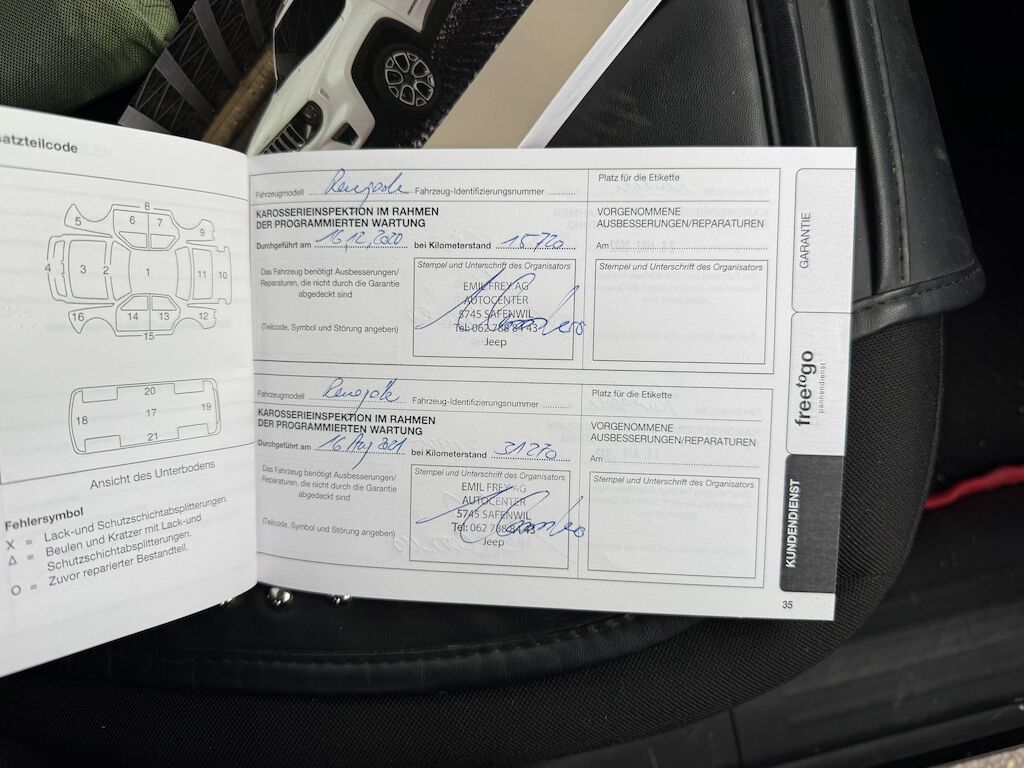 satzteilcode
8
5 6 7 9
4 3 2 1 11 10
16 14 13 12
15
20
18 17 19
21
Ansicht des Unterbodens
Fehlersymbol
X = Lack-und Schutzschichtabsplitterungen.
Δ = Beulen und Kratzer mit Lack-und
Schutzschichtabsplitterungen.
O = Zuvor reparierter Bestandteil.
Fahrzeugmodell Renegade Fahrzeug-Identifizierungsnummer
KAROSSERIEINSPEKTION IM RAHMEN
DER PROGRAMMIERTEN WARTUNG
Durchgeführt am 16.12.2020 bei Kilometerstand 15720
Das Fahrzeug benötigt Ausbesserungen/
Reparaturen, die nicht durch die Garantie
abgedeckt sind
(Teilcode, Symbol und Störung angeben)
Stempel und Unterschrift des Organisators
EMIL FREY AG
AUTOCENTER
5745 SAFENWIL
Tel: 062 788 84 43
Jeep
Platz für die Etikette
VORGENOMMENE
AUSBESSERUNGEN/REPARATUREN
Am
Stempel und Unterschrift des Organisators
Fahrzeugmodell Renegade Fahrzeug-Identifizierungsnummer
KAROSSERIEINSPEKTION IM RAHMEN
DER PROGRAMMIERTEN WARTUNG
Durchgeführt am 16 Aug 2021 bei Kilometerstand 31270
Das Fahrzeug benötigt Ausbesserungen/
Reparaturen, die nicht durch die Garantie
abgedeckt sind
(Teilcode, Symbol und Störung angeben)
Stempel und Unterschrift des Organisators
EMIL FREY AG
AUTOCENTER
5745 SAFENWIL
Tel: 062 788 84 43
Jeep
Platz für die Etikette
VORGENOMMENE
AUSBESSERUNGEN/REPARATUREN
Am
Stempel und Unterschrift des Organisators
GARANTIE
freetogo
pannendienst
KUNDENDIENST
35